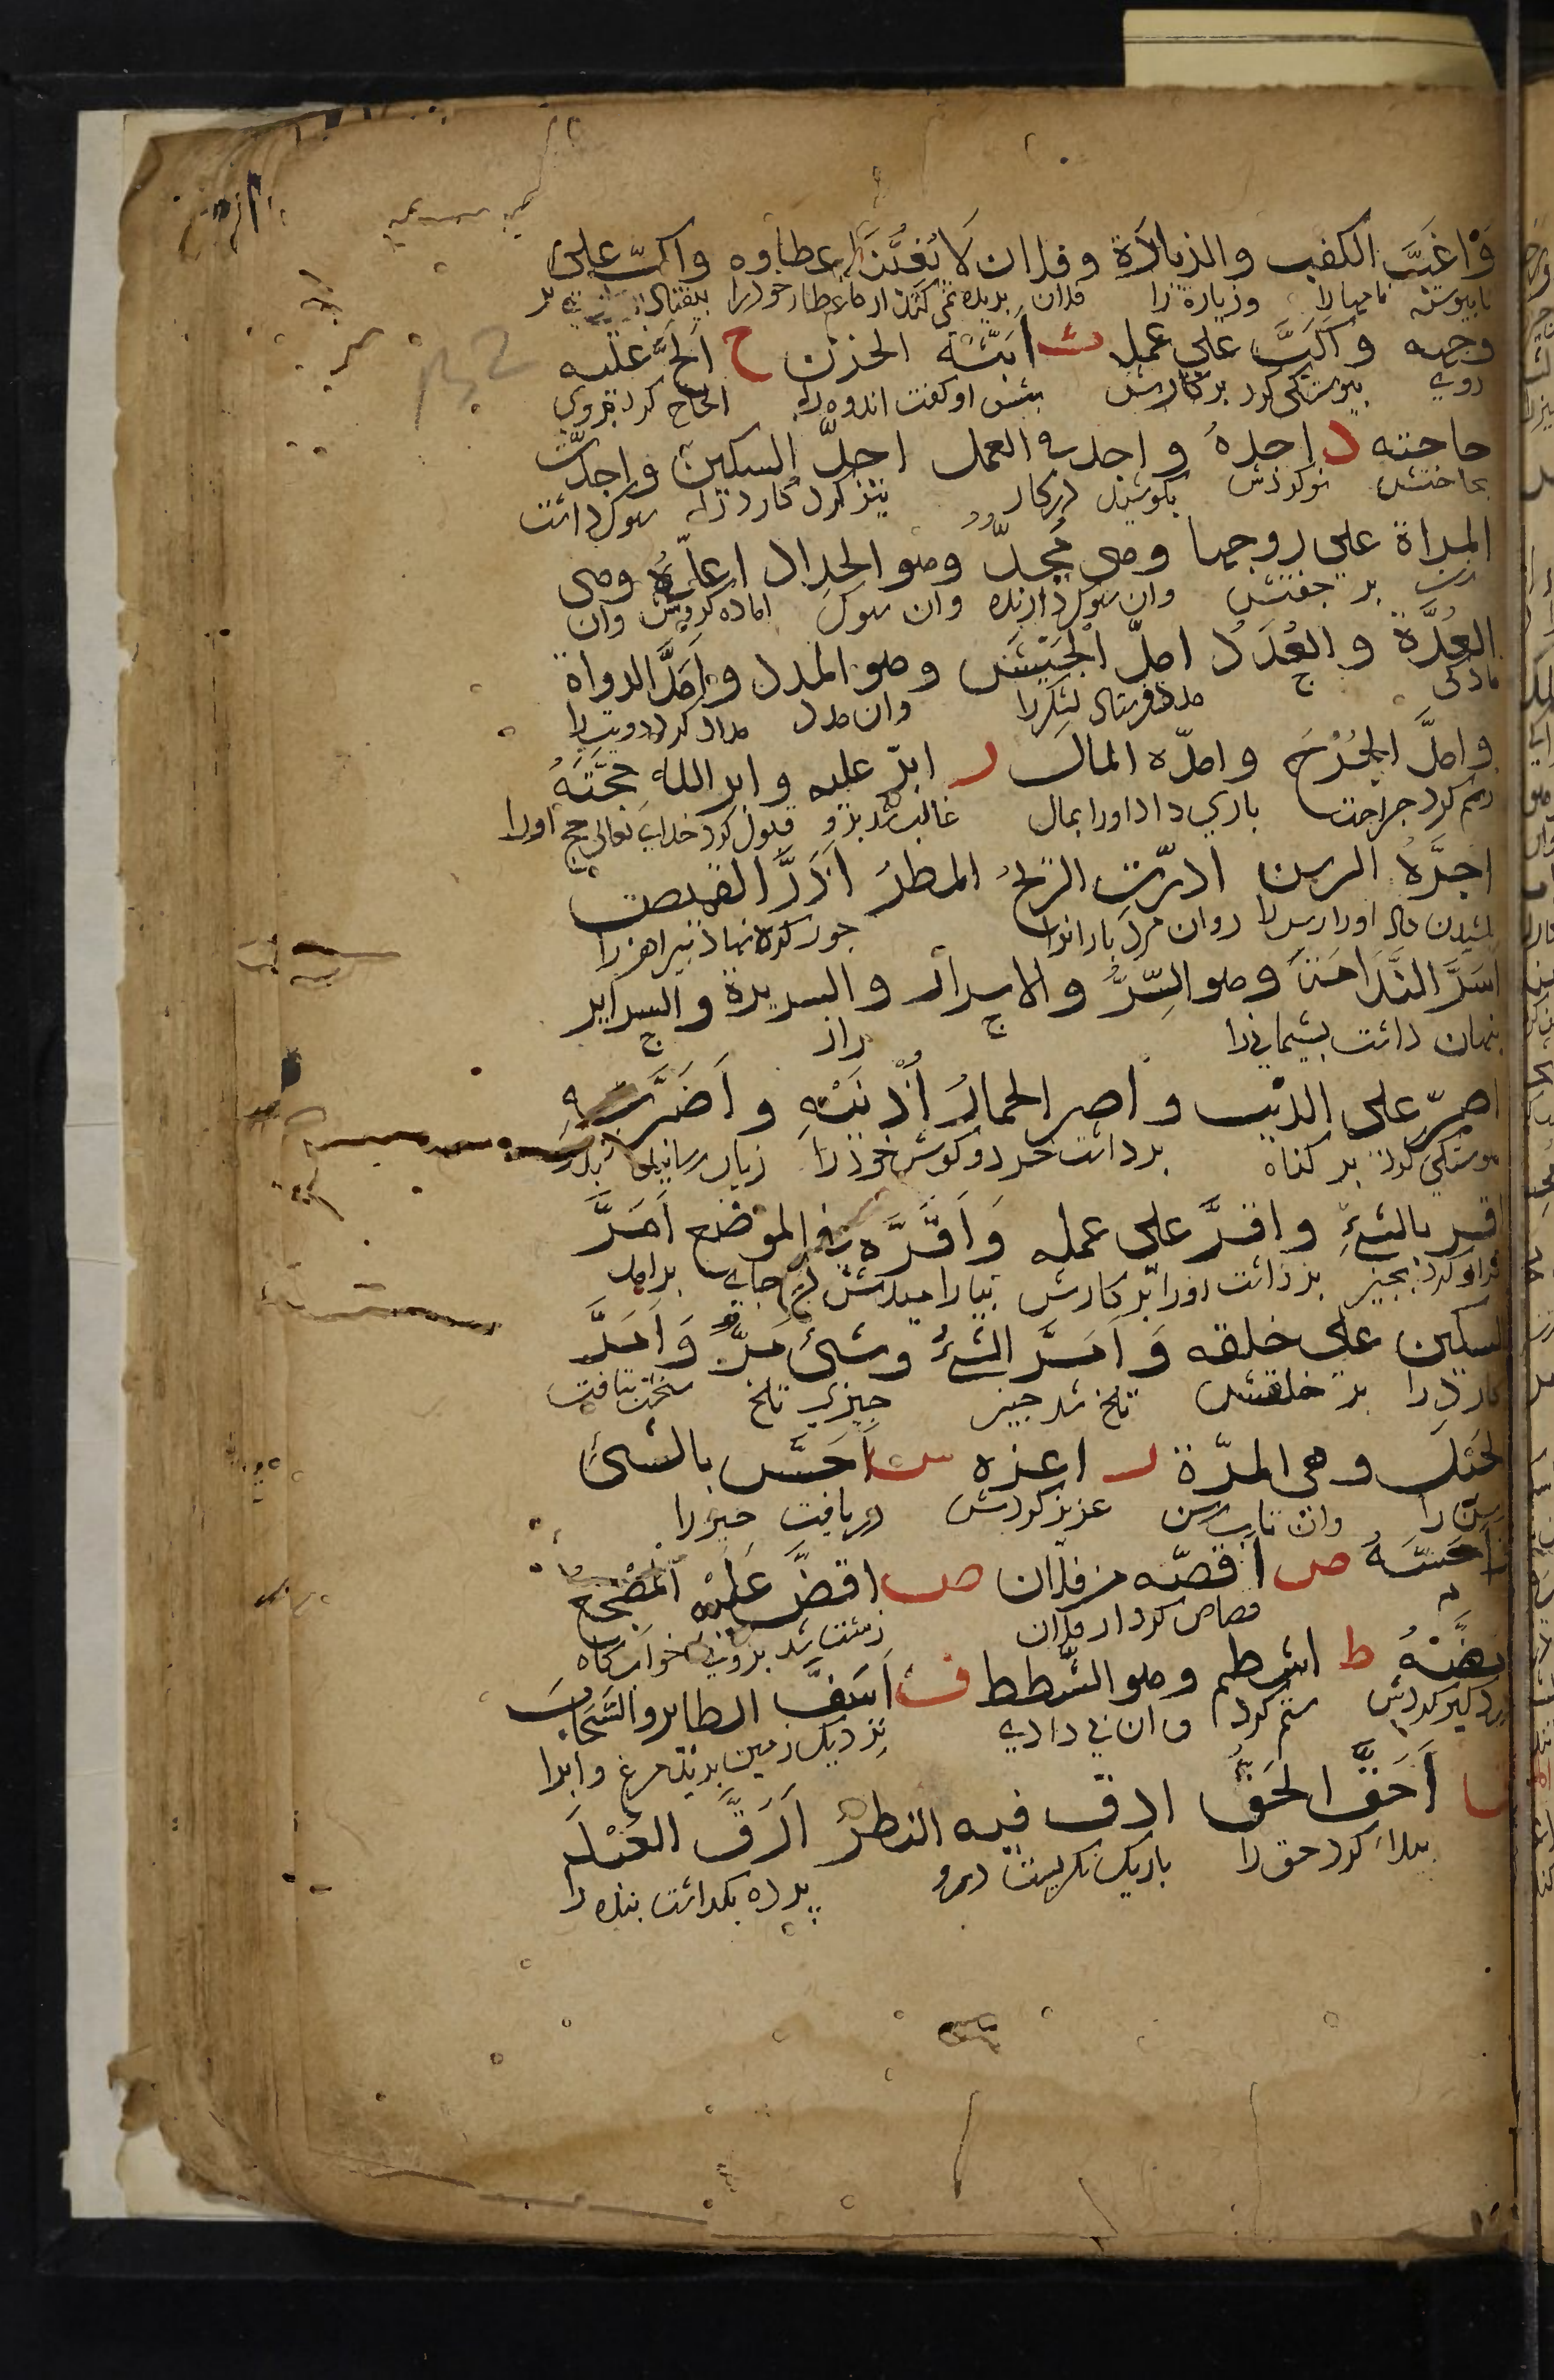 وَاغَبَّ الكتب والزيارة وفلان لا يُغبُّنَا عطاوه واكبّ على
نابيوسته نامها را وزيارة را فلان بريده نمی كند از ما عطا خود را بيفتاد بر
وجهه وَاكَبَّ على عمله ث اَبَثَّهُ الحزن ح اَلَحَّ عليه
روی پيوستگی كرد بر كارش پيش او گفت اندوه را الحاح كرد بروی
حاجته د اجدهُ واجد فی العمل احدَّ السكين واحدّت
بحاجتش نو كردش بكوشيد در كار تيز كرد كارد را سوک داشت
المراة على زوجها وهی مُحِدٌّ وهو الحداد اعدّهُ وهی
زن بر جفتش وان سوک دارنده وان سوک اماده كردش وان
العُدَّة والعُدَدُ امدّ الجَيْشَ وهو المدد وَاَمَدَّ الدواة
مدد فرستاد لشكر را وان مدد مداد كرد دويت را
وامدَّ الجُرْحُ وامدّه المال ر ابرّ عليه وابر اللهُ حَجَّتَهُ
ريم كرد جراحت ياری داد اورا بمال غالب شد برو قبول كرد خدای تعالی حج اورا
اجرَّهُ الرسن ادرّتِ الريحُ المطرَ اَزَرَّ القميص
كشيدن داد اورا رسن را روان كرد بارانرا جوز كره نهاذ پيراهن را
اَسَرَّ النَّدَامَةَ وهو السِّرُّ والاسرار والسريرة والسراير
پنهان داشت پشيمانی را راز
اصرّ على الذنب واصر الحمارُ اُذُنَيْهِ وَاَضَرَّ بِهِ
پيوستگی كرد بر گناه برداشت خر دو گوش خود را زيان رسانيد
اقر بالشئِ واقرَّ على عمله وَاَقَرَّه فی الموضع اَمَرَّ
اقرار كرد بچيز بر داشت اورا بر كارش بياراميدش در جای براند
السكين على حلقه وَاَمَرَّ الشئُ وشئ مُرٌّ وَاَمَرَّ
كارد را بر حلقش تلخ شد چيز چيزی تلخ سخت بتافت
الحَبْلَ وهی المرّة ز اعزه س اَحَسَّ بالشئ
رسن را وان تاب رسن عزيز كردش دريافت چيز را
وَاَحَسَّهُ ص اَقصّه من فلان ض اقضَّ عَلَيْهِ المَضْجعُ
قصاص كرد از فلان درشت شد بروی خواب گاه
ط اشط وهو الشَّطط ف اَسَفَّ الطاير والسَّحَابُ
ستم كرد وان بی دادی نزديک زمين بريد مرغ وابرا
ق اَحَقَّ الحَقَّ ادق فيه النظرَ اَرَقَّ العَبْدَ
كرد حق را باريک نگريست درو برده بگداشت بنده را